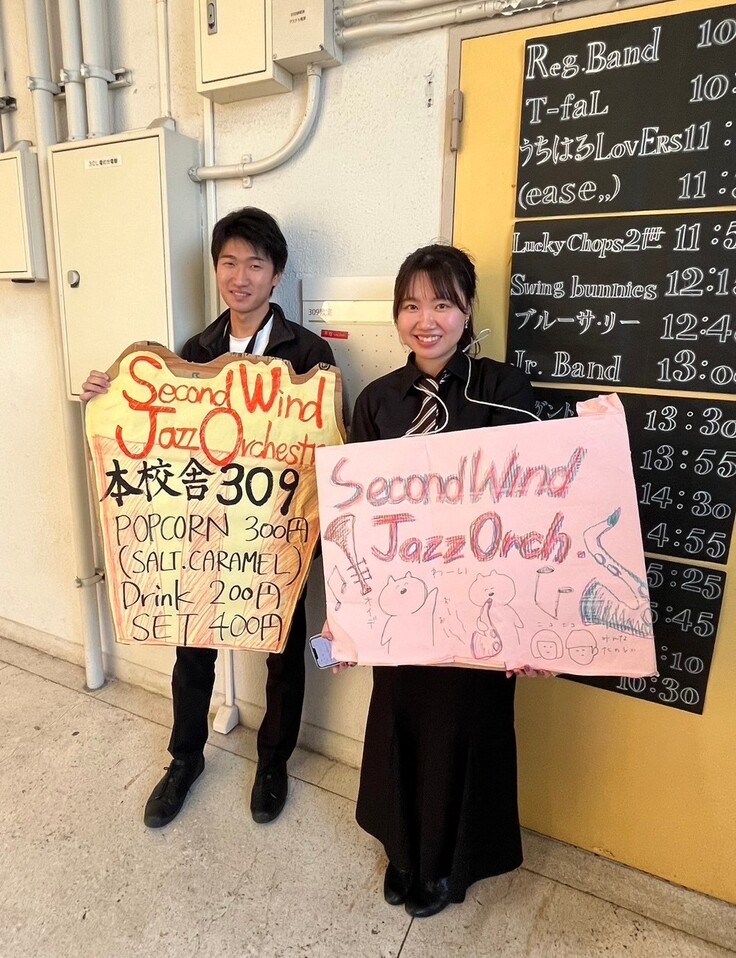 Second Wind
Jazz Orchestr
本校舎309
POPCORN 300円
(SALT.CARAMEL)
Drink 200円
SET 400円
Second Wind
Jazz Orch.
わーい
309
Reg.Band 10
T-faL 10:
うちはるLovERS 11:
(ease,,) 11:
Lucky Chops2世 11:5
Swing bunnies 12:1
ブルーサ・リー 12:4
Jr. Band 13:0
13:30
13:55
14:30
4:55
5:25
:45
:10
10:30